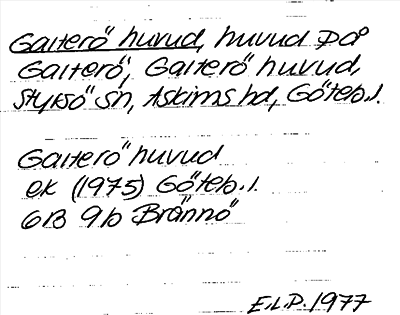 Gaiterö huvud, huvud på
Gaiterö, Gaiterö huvud,
Styrsö sn, Askims hd, Göteb.l.
Gaiterö huvud
ek (1975) Göteb.l.
6B 9b Brännö
E.L.P. 1977